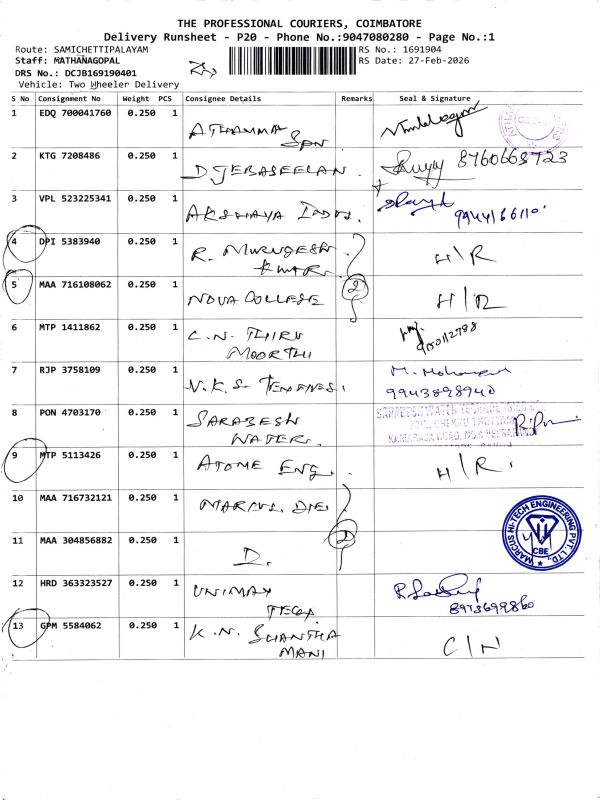 THE PROFESSIONAL COURIERS, COIMBATORE
Delivery Runsheet - P20 - Phone No.:9047080280 - Page No.:1
Route: SAMICHETTIPALAYAM
RS No.: 1691904
Staff: MATHANAGOPAL
RS Date: 27-Feb-2026
DRS No.: DCJB169190401
Vehicle: Two Wheeler Delivery
S No Consignment No Weight PCS Consignee Details Remarks Seal & Signature
1 EDQ 700041760 0.250 1
2 KTG 7208486 0.250 1 D JEBASEELAN 8760663723
3 VPL 523225341 0.250 1 AKSHAYA INDUS.
4 DPI 5383940 0.250 1 R. MURUGESH H/R
KUMAR
5 MAA 716108062 0.250 1 NOVA COLLEGE 2 H/R
6 MTP 1411862 0.250 1 C.N. THIRU
MOORTHI
7 RJP 3758109 0.250 1 N.K.S M. Mohan
9943898940
8 PON 4703170 0.250 1 SARABESH
WATER
9 MTP 5113426 0.250 1 ATOME ENG. H/R.
10 MAA 716732121 0.250 1 MARCUS. DIE
11 MAA 304856882 0.250 1 D. 2
MARCUS HI-TECH ENGINEERING PVT. LTD.
CBE
12 HRD 363323527 0.250 1 UNIMAX
8973699860
13 GPM 5584062 0.250 1 K.N. SHANTHA C/N
MANI